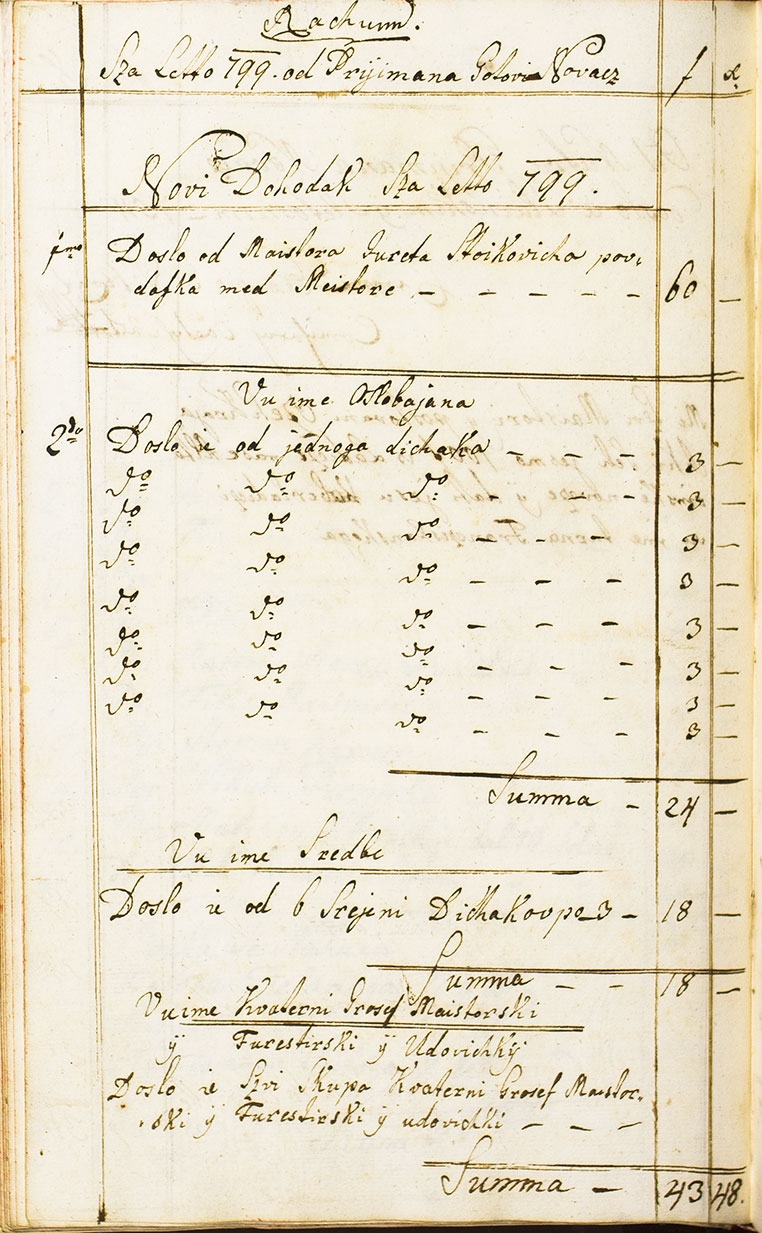 Rachunn.
Sza Letto 799. od Prijimana Gotovi Novacz f x
Novi Dohodak Sza Letto 799.
1mo Doslo od Maistora Jureta Stoikovicha povi
dafka med Meistore – – – – – 60 –
Vu ime Oslobajana
2do Doslo ie od jednoga dichaka – – – 3 –
do do do – – – 3 –
do do do – – – 3 –
do do do – – – 3 –
do do do – – – 3 –
do do do – – – 3 –
do do do – – – 3 –
do do do – – – 3 –
Summa – 24 –
Vu ime Sredbe
Doslo ie od 6 Srejeni Dichakov po 3 – 18 –
Summa – – 18 –
Vu ime Kvaterni Grosef Maistorski
ÿ Furestirski ÿ Udovichkÿ
Doslo ie Szvi Skupa Kvaterni Grosef Maistor-
ski ÿ Furestirski ÿ udovichki – – –
Summa – 43 48.